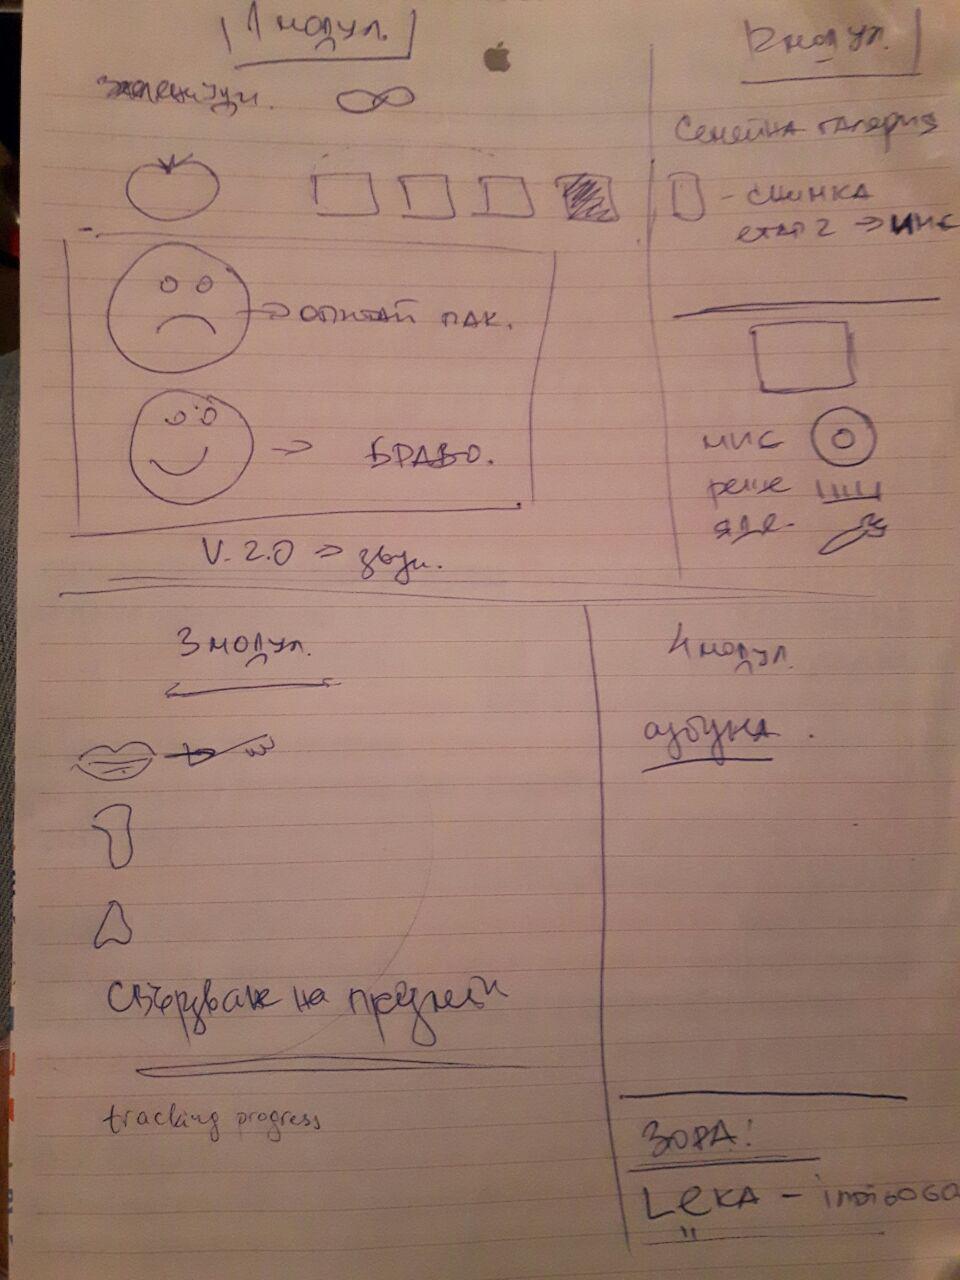 1 модул.
зеленчуци.
опитай пак.
БРАВО.
V. 2.0 => звук.
2 модул.
Семейна галерия
- снимка
етап 2 ->
3 модул.
Свързване на предмети
tracking progress
4 модул.
азбука.
ЗОРА!
LËKA -